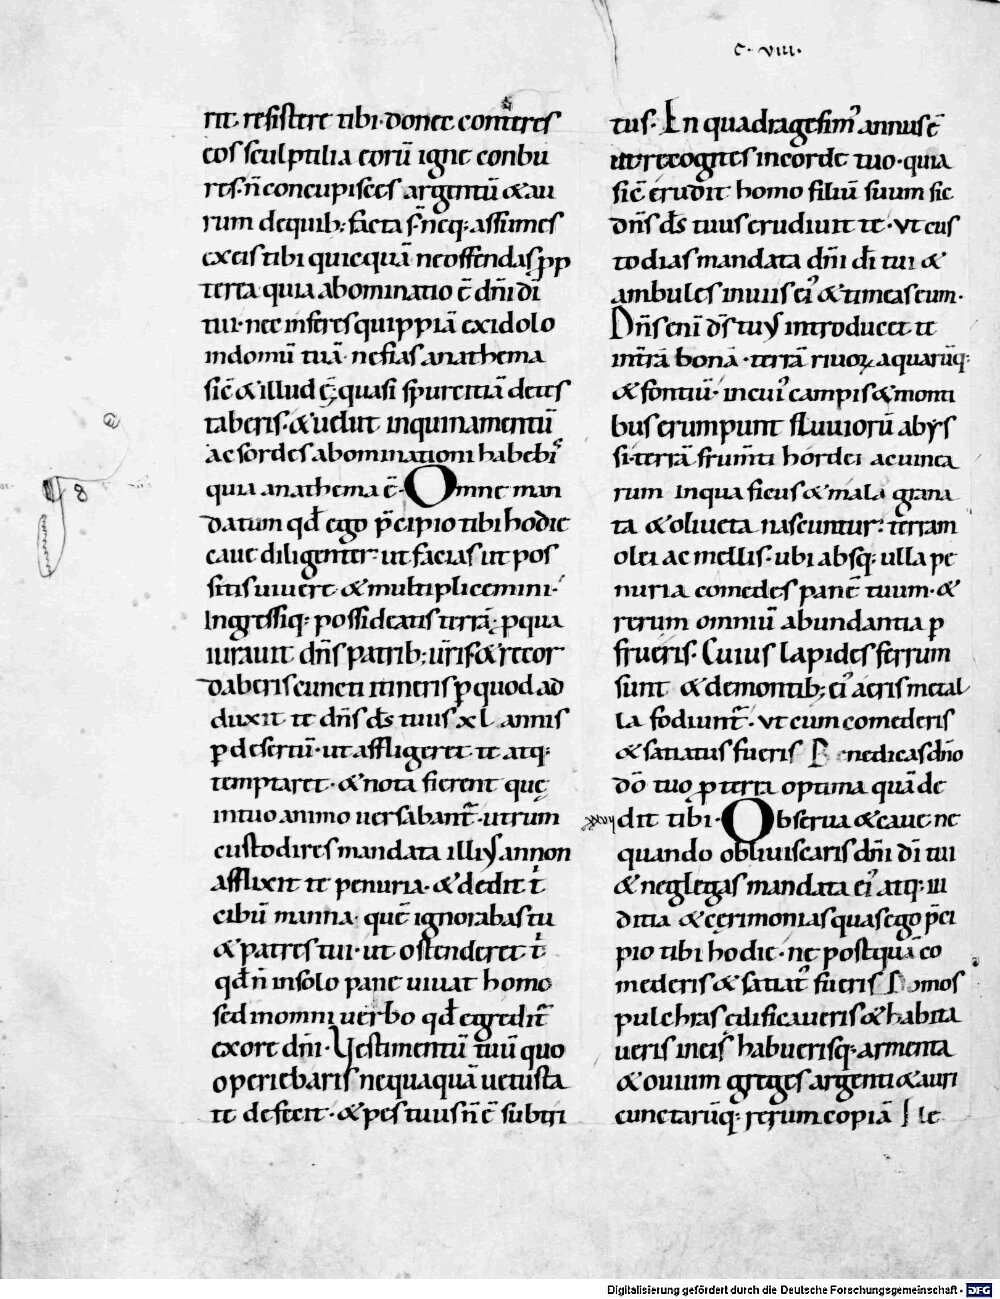 c. viii.
rit resistere tibi. donec conteres
eos sculptilia eorū igne conbu
res. n̄ concupisces argentū & au
rum de quib; facta s̄. neq; assumes
ex eis tibi quicquā ne offendas ꝓp
terea quia abominatio ē dn̄i dī
tui. nec inferes quippiā ex idolo
in domū tuā. ne fias anathema
sic̄ & illud ē. quasi spurcitiā detes
taberis. & uelut inquinamentū
ac sordes abominationi habebiꝰ
quia anathema ē. Omne man
datum qđ ego p̄cipio tibi hodie
caue diligenter. ut facias ut pos
sitis uiuere. & multiplicemini.
Ingressiq; possideatis terrā. ꝓ qua
iurauit dn̄s patrib; ur̄is. & recor
daberis cuncti itineris ꝑ quod ad
duxit te dn̄s ds̄ tuus xl annis
ꝑ desertū. ut affligeret te atq;
temptaret. & nota fierent quę
in tuo animo uersabant̄. utrum
custodires mandata illiꝰ an non
afflixit te penuria. & dedit t̄
cibū manna. quē ignorabas tu
& patres tui. ut ostenderet t̄
qđ n̄ in solo pane uiuat homo
sed in omni uerbo qđ egredit̄
ex ore dn̄i. Vestimentū tuū quo
operiebaris nequaquā uetusta
te defecit. & pes tuus n̄ ē subtri
8
tus. En quadragesimꝰ annus ē
ut recogites in corde tuo. quia
sic̄ erudit homo filiū suum sic
dn̄s ds̄ tuus erudiuit te. vt cus
todias mandata dn̄i dī tui &
ambules in uiis eiꝰ & timeas eum.
Dn̄s eni ds̄ tuꝰ introducet te
in trā bonā. terrā riuoꝝ aquarūq;
& fontiū. in cuiꝰ campis & monti
bus erumpunt fluuiorū abys
si. terrā frumti hordei ac uinea
rum in qua ficus & mala grana
ta & oliueta nascuntur. terram
olei ac mellis. ubi absq; ulla pe
nuria comedes panē tuum. &
rerum omniū abundantia ꝑ
frueris. Cuius lapides ferrum
sunt & de montib; eiꝰ aeris metal
la fodiunt̄. vt cum comederis
& satiatus fueris Benedicas dn̄o
dō tuo ꝓ terra optima quā de
dit tibi. Obserua & caue ne
quando obliuiscaris dn̄i dī tui
& neglegas mandata eiꝰ atq; iu
ditia & cerimonias quas ego p̄ci
pio tibi hodie. ne postquā co
mederis & satiatꝰ fueris Domos
pulchras edificaueris & habita
ueris in eis habuerisq; armenta
& ouium greges argenti & auri
cunctarūq; rerum copiā Ele
Digitalisierung gefördert durch die Deutsche Forschungsgemeinschaft - DFG